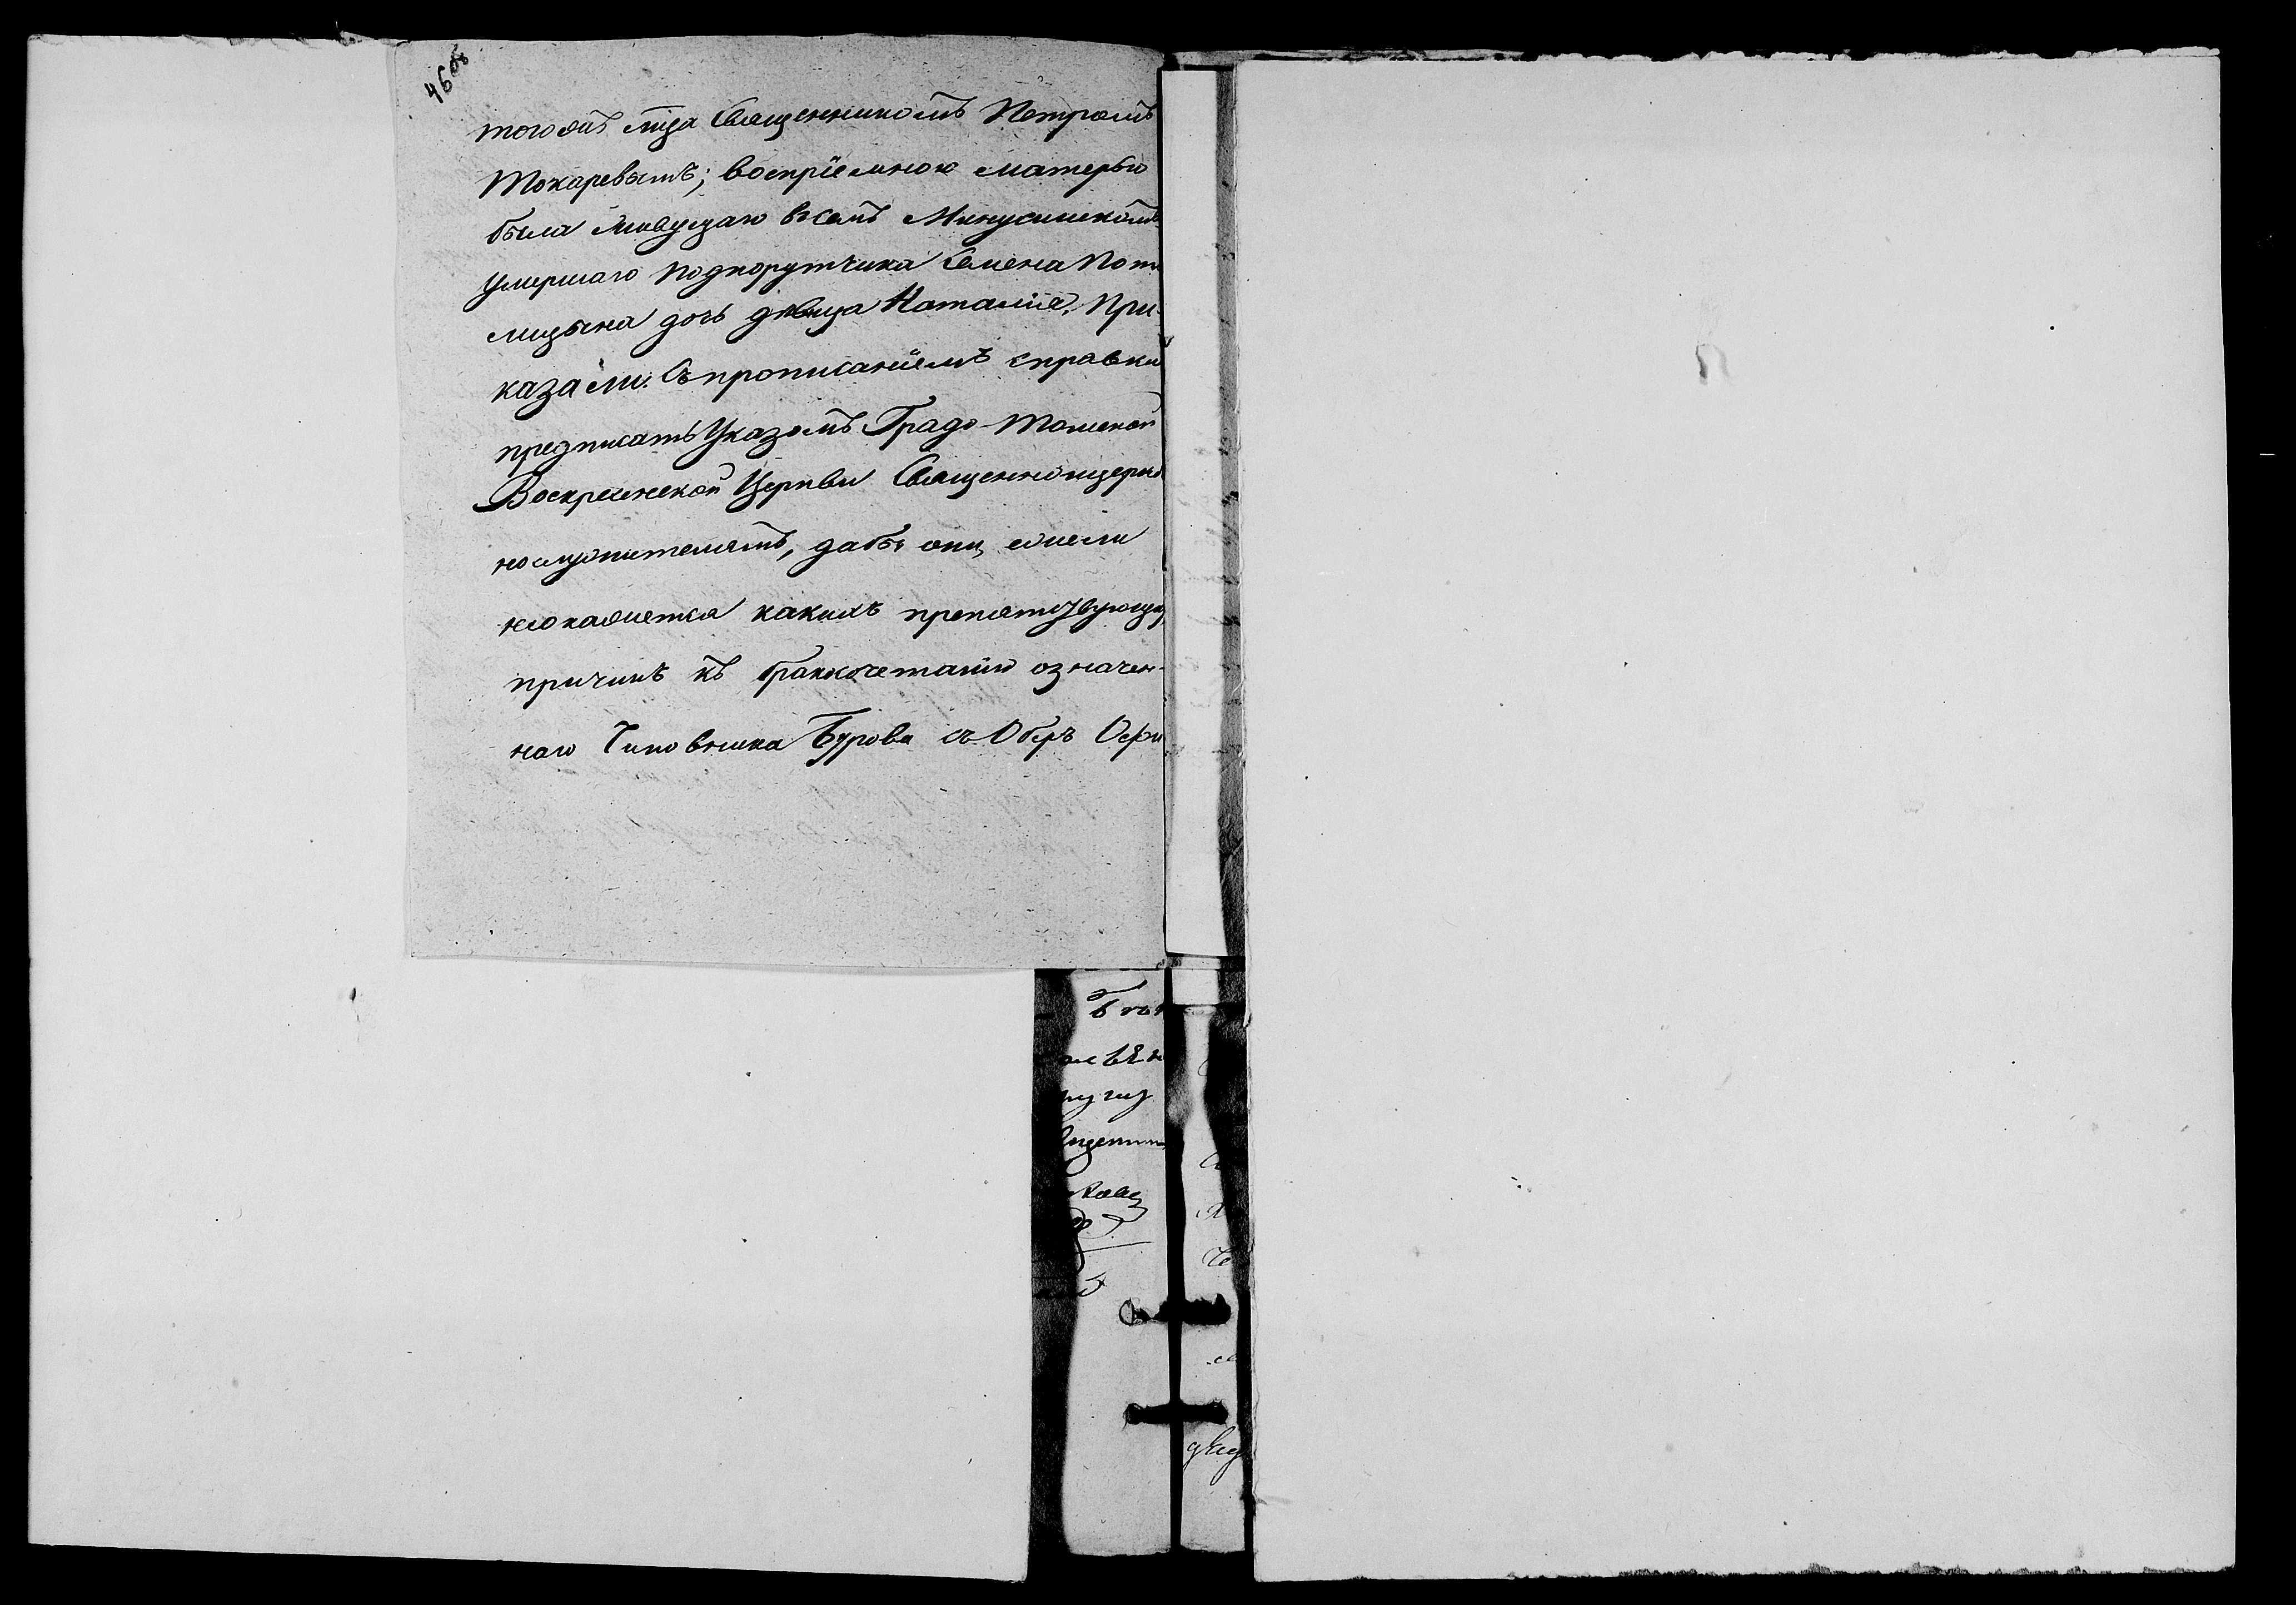 46 об
тогожъ мца Священникомъ Петромъ
Токаревымъ; воспріемною матерью
была живущаго въ селѣ Минусинскомъ
умершаго подпорутчика Семена Поп
мицына дочь дѣвица Наталия. При-
казали: Съ прописаніемъ справки
предписать Указомъ Градо-Томской
Воскресенской Церкви Священноцерко
нослужителямъ, дабы они, если
неокажется какихъ препятствующихъ
причинъ къ бракосочетанію означен-
наго Чиновника Бурова съ Оберъ Офи